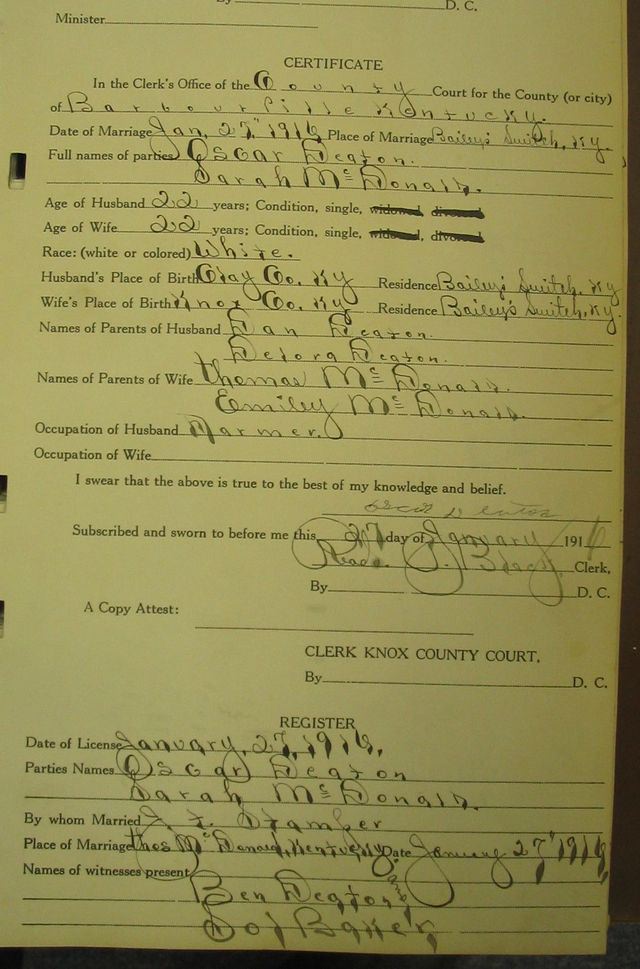 By D. C.
Minister
CERTIFICATE
In the Clerk's Office of the County Court for the County (or city)
of Barbourville Kentucky.
Date of Marriage Jan, 27" 1916 Place of Marriage Bailey's Switch, Ky.
Full names of parties Oscar Deaton.
Sarah McDonald.
Age of Husband 22 years; Condition, single, widowed, divorced
Age of Wife 22 years; Condition, single, widowed, divorced
Race: (white or colored) White.
Husband's Place of Birth Clay Co. Ky Residence Bailey's Switch, Ky
Wife's Place of Birth Knox Co. Ky Residence Bailey's Switch, Ky.
Names of Parents of Husband Dan Deaton.
Delora Deaton.
Names of Parents of Wife Thomas McDonald.
Emiley McDonald.
Occupation of Husband Farmer.
Occupation of Wife
I swear that the above is true to the best of my knowledge and belief.
Subscribed and sworn to before me this 27 day of January 1916
Read Clerk,
By D. C.
A Copy Attest:
CLERK KNOX COUNTY COURT.
By D. C.
REGISTER
Date of License January, 27, 1916,
Parties Names Oscar Deaton
Sarah McDonald.
By whom Married
Place of Marriage Thos McDonald, Kentucky Date January 27" 1916
Names of witnesses present
Ben Deaton
Baker